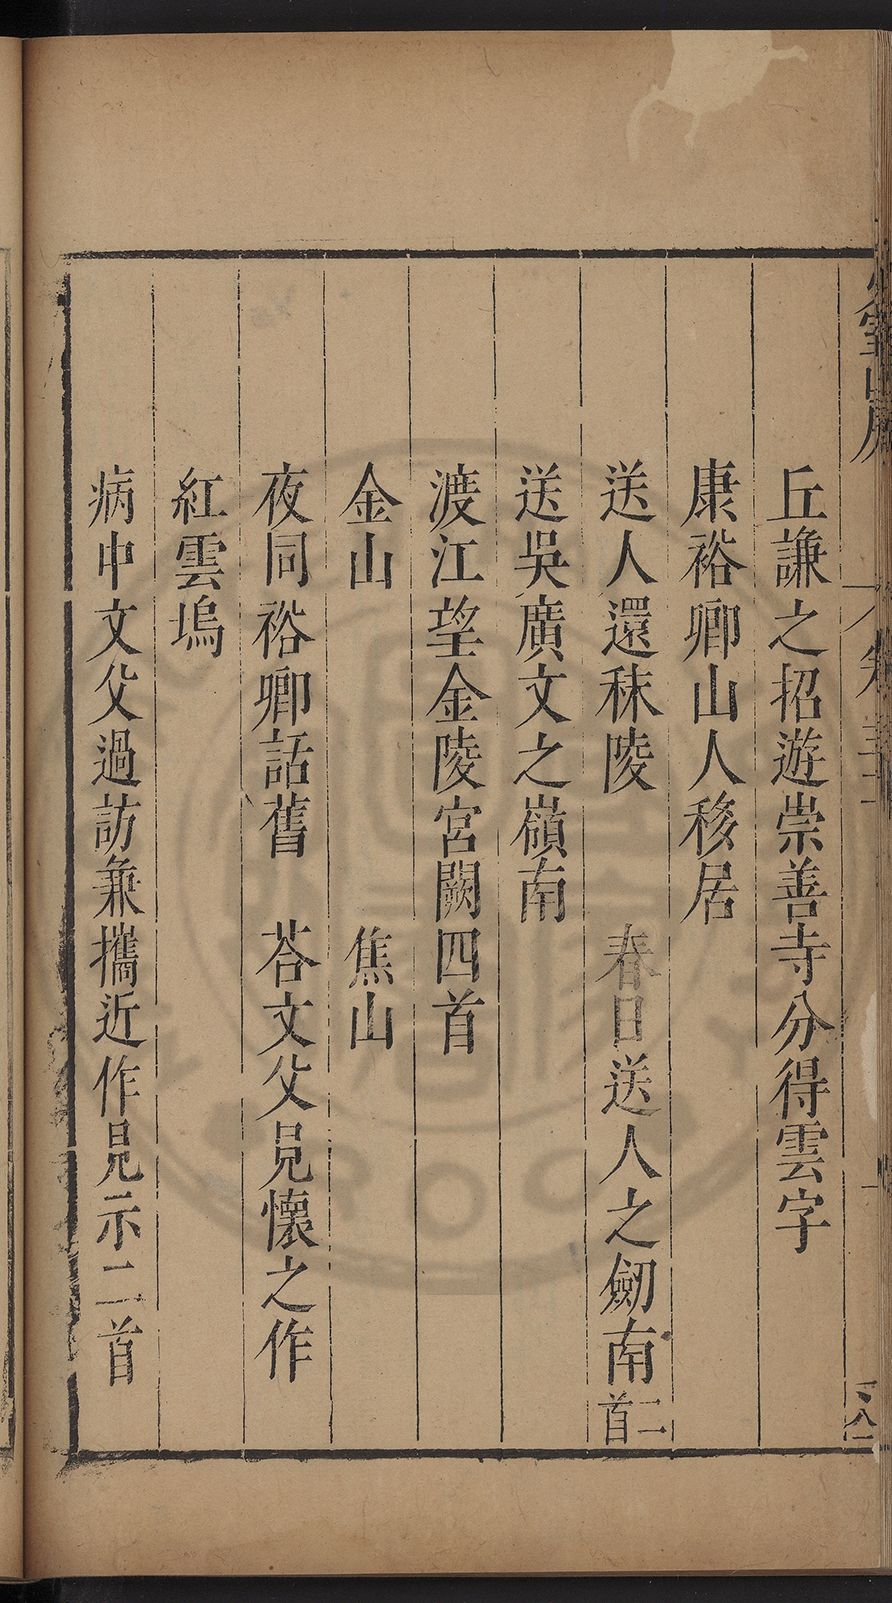 丘謙之招遊崇善寺分得雲字
康裕卿山人移居
送人還秣陵　春日送人之劒南二首
送吳廣文之嶺南
渡江望金陵宮闕四首
金山　焦山
夜同裕卿話舊　荅文父見懷之作
紅雲塢
病中文父過訪兼攜近作見示二首